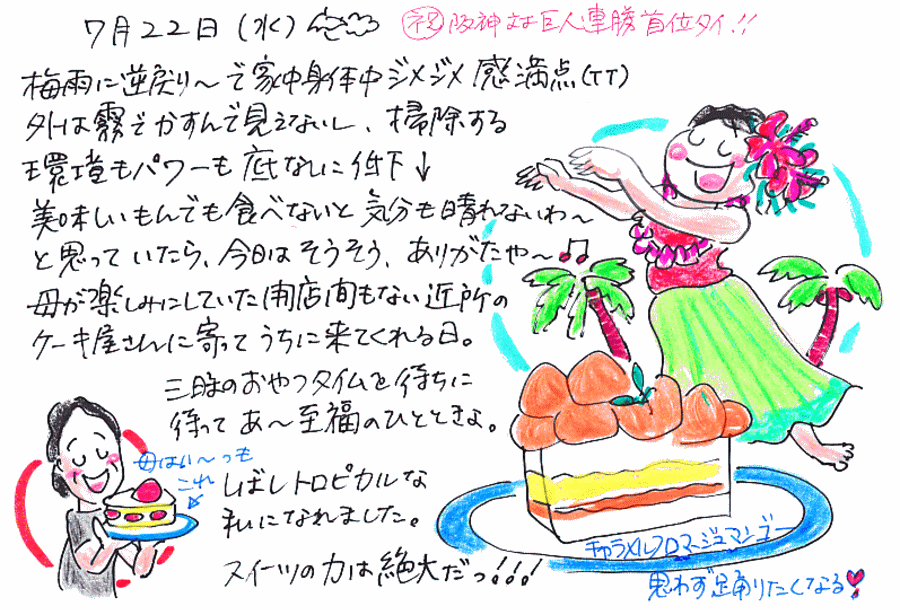 7月22日(水)
祝阪神対巨人連勝首位タイ!!
梅雨に逆戻り〜で家中身体中ジメジメ感満点(TT)
外は霧でかすんで見えないし、掃除する
環境もパワーも底なしに低下↓
美味しいもんでも食べないと気分も晴れないわ〜
と思っていたら、今日はそうそう、ありがたや〜♫
母が楽しみにしていた開店間もない近所の
ケーキ屋さんに寄ってうちに来てくれる日。
三時のおやつタイムを待ちに
待ってあ〜至福のひとときよ。
母はい〜つも
これ
しばしトロピカルな
私になれました。
スイーツの力は絶大だっ!!!
キャラメルフロマージュマンゴー
思わず踊りたくなる